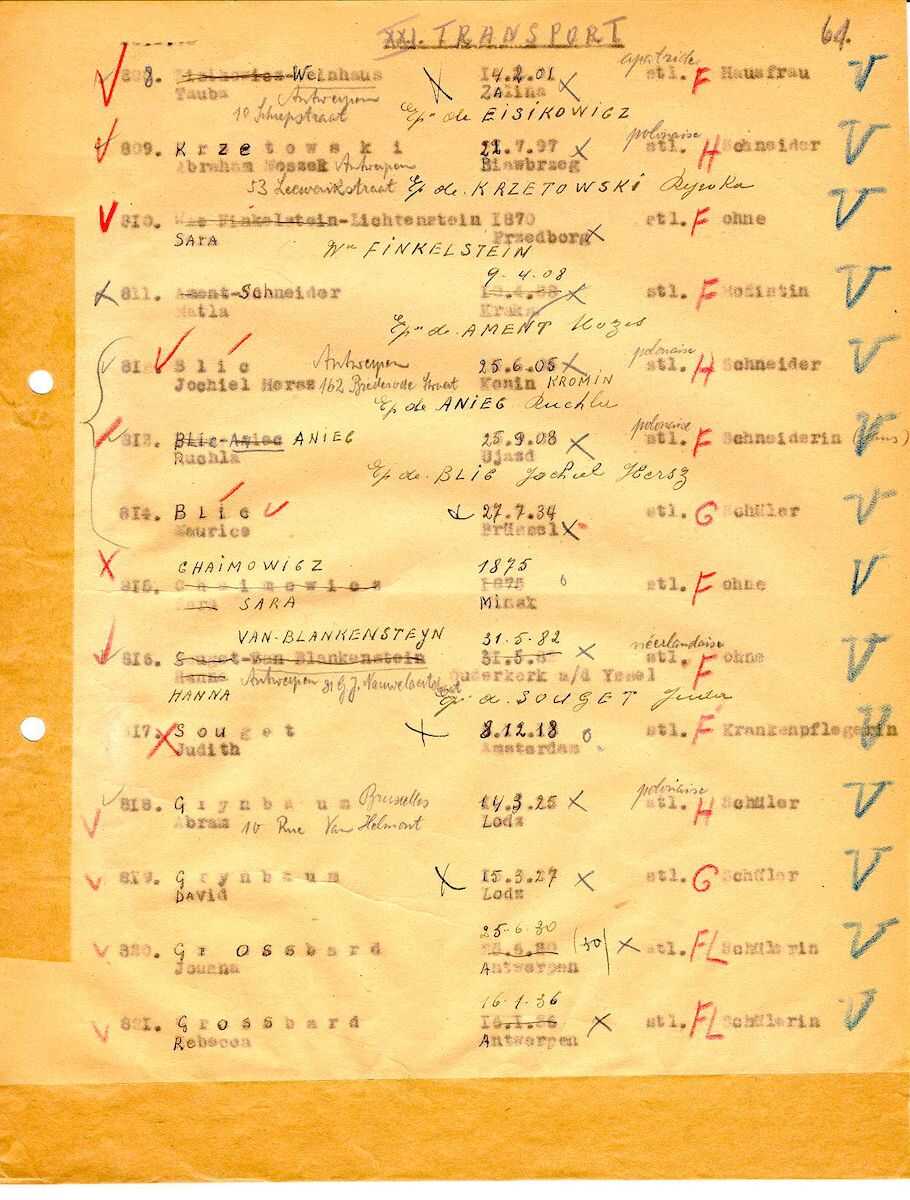 XXI. TRANSPORT 61.
apatride
808. Eisikowicz-Weinhaus 14.2.01 stl. F Hausfrau
Tauba Antwerpen Zalina
10 Schipstraat Epse de EISIKOWICZ
polonaise
809. Krzetowski 22.7.97 stl. H Schneider
Abraham Moszek Antwerpen Biawbrzeg
53 Leeuwerikstraat Ep de KRZETOWSKI
810. Wwe Finkelstein-Lichtenstein 1870 stl. F ohne
SARA Przedborg
Wve FINKELSTEIN
9-4-08
811. Ament-Schneider stl. F Modistin
Matla Kraka
Epse de AMENT Mozes
polonaise
812. Blic Antwerpen 25.6.05 stl. H Schneider
Jochiel Hersz 162 Brederode Straat Konin KROMIN
Ep de ANIEG Ruchla
polonaise
813. Blic-Aniec ANIEG 25.9.08 stl. F Schneiderin
Ruchla Ujazd
Ep de BLIG Jochiel Hersz
814. Blic 27.7.34 stl. G Schüler
Maurice Brüssel
CHAIMOWICZ 1875
815. Chaimowicz 1875 stl. F ohne
Sara SARA Minsk
VAN-BLANKENSTEYN 31-5-82 néerlandaise
816. Souget-Van Blankenstein 31.5.82 stl. F ohne
Hanna Antwerpen 81 G.J. Nauwelaerts Ouderkerk a/d Yssel
HANNA Epse d. SOUGET Juda
817. Souget 8.12.18 stl. F Krankenpflegerin
Judith Amsterdam
polonaise
818. Grynbaum Bruxelles 14.3.25 stl. H Schüler
Abram 10 Rue Van Helmont Lodz
819. Grynbaum 15.3.27 stl. G Schüler
David Lodz
25-6-30
820. Grossbard (30) stl. FL Schülerin
Jouana Antwerpen
16-1-36
821. Grossbard 16.1.36 stl. FL Schülerin
Rebecca Antwerpen